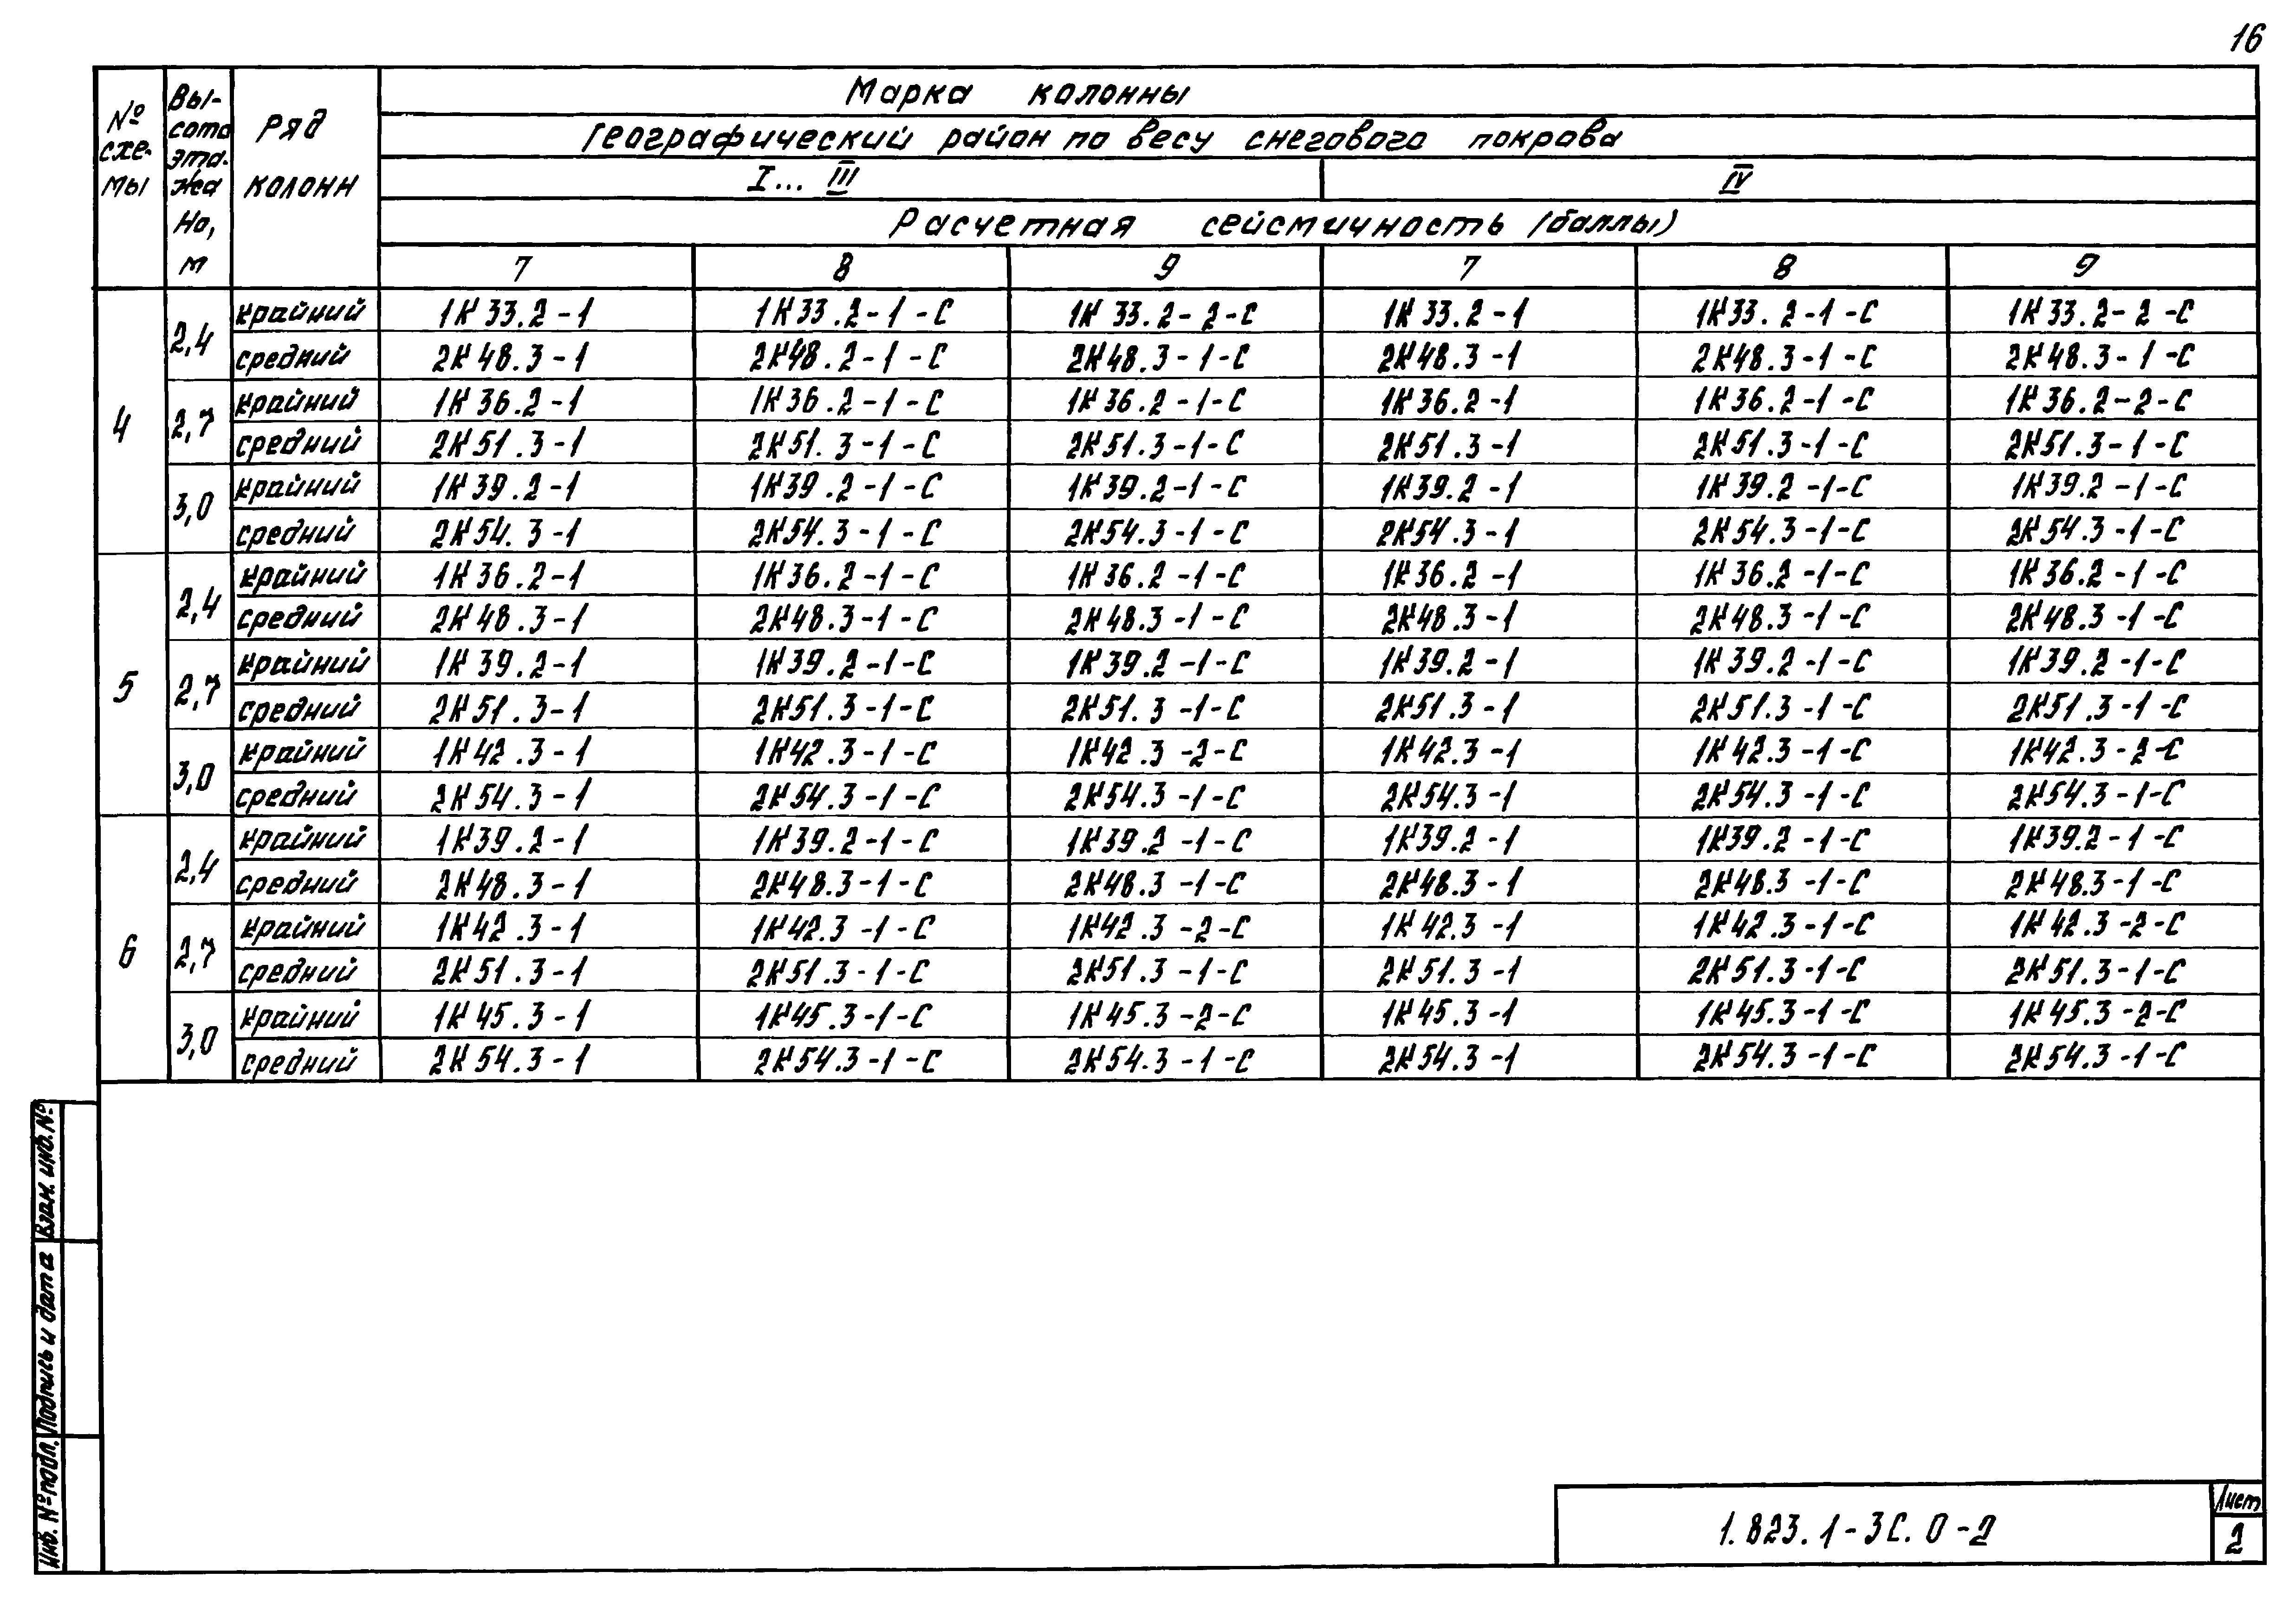 16
№ схе- мы
Вы- сота эта- жа Но, м
Ряд колонн
Марка колонны
Географический район по весу снегового покрова
I... III IV
Расчетная сейсмичность (баллы)
7 8 9 7 8 9
4 2,4 крайний 1К33.2-1 1К33.2-1-С 1К33.2-2-С 1К33.2-1 1К33.2-1-С 1К33.2-2-С
средний 2К48.3-1 2К48.2-1-С 2К48.3-1-С 2К48.3-1 2К48.3-1-С 2К48.3-1-С
2,7 крайний 1К36.2-1 1К36.2-1-С 1К36.2-1-С 1К36.2-1 1К36.2-1-С 1К36.2-2-С
средний 2К51.3-1 2К51.3-1-С 2К51.3-1-С 2К51.3-1 2К51.3-1-С 2К51.3-1-С
3,0 крайний 1К39.2-1 1К39.2-1-С 1К39.2-1-С 1К39.2-1 1К39.2-1-С 1К39.2-1-С
средний 2К54.3-1 2К54.3-1-С 2К54.3-1-С 2К54.3-1 2К54.3-1-С 2К54.3-1-С
5 2,4 крайний 1К36.2-1 1К36.2-1-С 1К36.2-1-С 1К36.2-1 1К36.2-1-С 1К36.2-1-С
средний 2К48.3-1 2К48.3-1-С 2К48.3-1-С 2К48.3-1 2К48.3-1-С 2К48.3-1-С
2,7 крайний 1К39.2-1 1К39.2-1-С 1К39.2-1-С 1К39.2-1 1К39.2-1-С 1К39.2-1-С
средний 2К51.3-1 2К51.3-1-С 2К51.3-1-С 2К51.3-1 2К51.3-1-С 2К51.3-1-С
3,0 крайний 1К42.3-1 1К42.3-1-С 1К42.3-2-С 1К42.3-1 1К42.3-1-С 1К42.3-2-С
средний 2К54.3-1 2К54.3-1-С 2К54.3-1-С 2К54.3-1 2К54.3-1-С 2К54.3-1-С
6 2,4 крайний 1К39.2-1 1К39.2-1-С 1К39.2-1-С 1К39.2-1 1К39.2-1-С 1К39.2-1-С
средний 2К48.3-1 2К48.3-1-С 2К48.3-1-С 2К48.3-1 2К48.3-1-С 2К48.3-1-С
2,7 крайний 1К42.3-1 1К42.3-1-С 1К42.3-2-С 1К42.3-1 1К42.3-1-С 1К42.3-2-С
средний 2К51.3-1 2К51.3-1-С 2К51.3-1-С 2К51.3-1 2К51.3-1-С 2К51.3-1-С
3,0 крайний 1К45.3-1 1К45.3-1-С 1К45.3-2-С 1К45.3-1 1К45.3-1-С 1К45.3-2-С
средний 2К54.3-1 2К54.3-1-С 2К54.3-1-С 2К54.3-1 2К54.3-1-С 2К54.3-1-С
Инв. № подл. Подпись и дата Взам. инв. №
1.823.1-3С.0-2
Лист
2